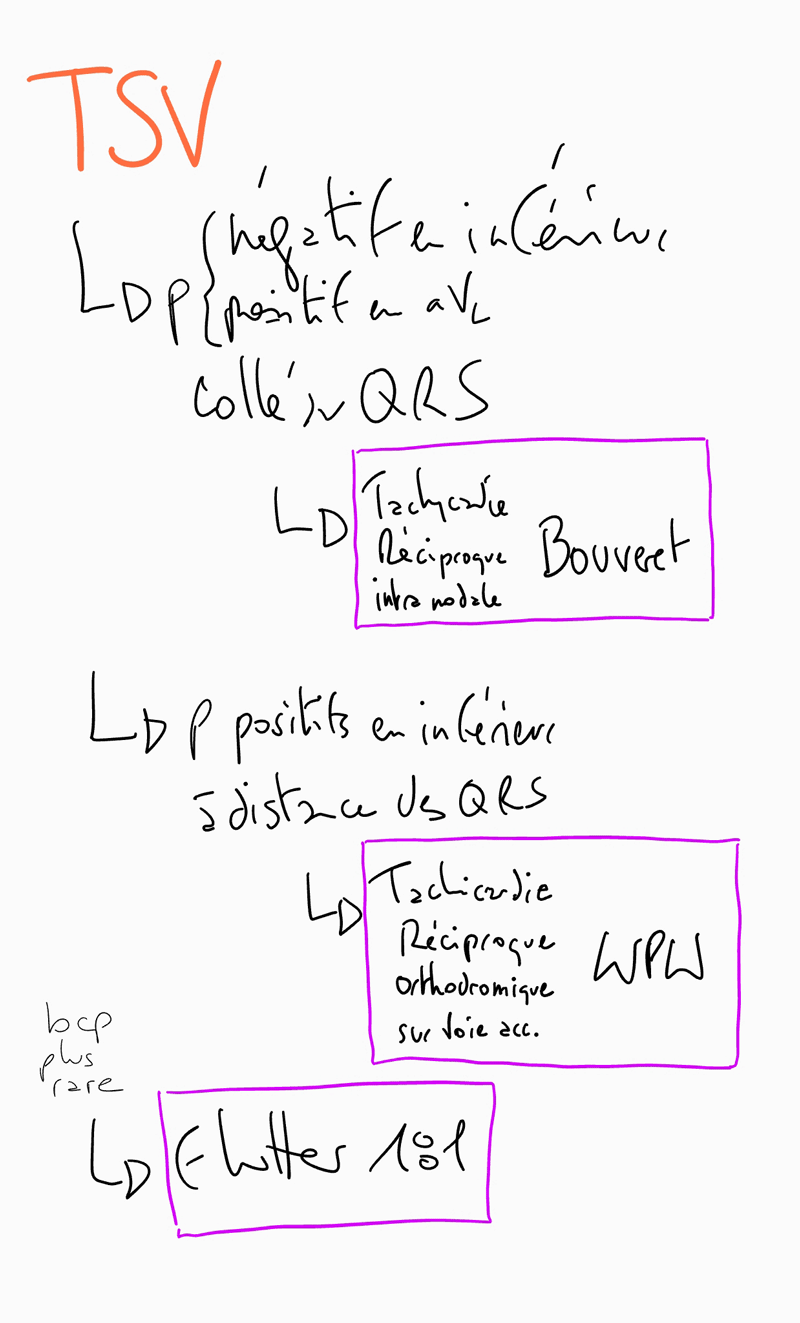 TSV
négatif en inférieur
P
positif en aVL
collé sur QRS
Tachycardie
Réciproque Bouveret
intra nodale
P positifs en inférieur
à distance des QRS
Tachicardie
Réciproque WPW
orthodromique
sur voie acc.
bcp
plus
rare
Flutter 1:1